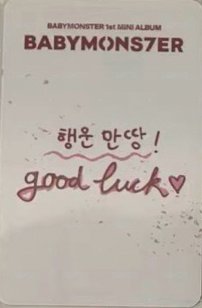 BABYMONSTER 1st MINI ALBUM
BABYMONS7ER
행운 만땅!
good luck♡